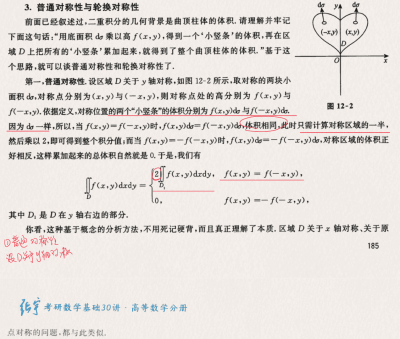 3. 普通对称性与轮换对称性
前面已经叙述过,二重积分的几何背景是曲顶柱体的体积. 请理解并牢记
下面这句话:“用底面积 dσ 乘以高 f(x,y),得到一个‘小竖条’的体积,再在区
域 D 上把所有的‘小竖条’累加起来,就得到了整个曲顶柱体的体积.”基于这
个思路,就可以谈普通对称性和轮换对称性了.
第一,普通对称性. 设区域 D 关于 y 轴对称,如图 12-2 所示,取对称的两块小
面积 dσ,对称点分别为(x,y)与(-x,y),则对称点处的高分别为 f(x,y)与
f(-x,y). 依据定义,对称位置的两个“小竖条”的体积分别为 f(x,y)dσ 与 f(-x,y)dσ.
y
dσ
dσ
(-x,y)
(x,y)
D
O
x
图 12-2
因为 dσ 一样,所以,当 f(x,y)=f(-x,y)时,f(x,y)dσ=f(-x,y)dσ,体积相同,此时只需计算对称区域的一半,
然后乘以 2,即可得到整个积分值;而当 f(x,y)=-f(-x,y)时,f(x,y)dσ=-f(-x,y)dσ,对称区域的体积正
好相反,这样累加起来的总体积自然就是 0. 于是,我们有
∬f(x,y)dxdy= { 2∬f(x,y)dxdy, f(x,y)=f(-x,y),
D D₁
0, f(x,y)=-f(-x,y),
其中 D₁ 是 D 在 y 轴右边的部分.
你看,这种基于概念的分析方法,不用死记硬背,而且真正理解了本质. 区域 D 关于 x 轴对称、关于原
185
①普通对称性
设D关于y轴对称
张宇 考研数学基础30讲·高等数学分册
点对称的问题,都与此类似.